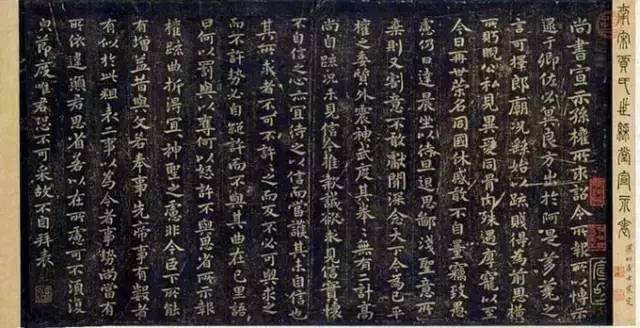 南宋賈氏世綵堂宣示表
尚書宣示孫權所求詔令所報所以博示
逮于卿佐必冀良方出於阿是芻蕘之
言可擇郎廟況繇始以疏賤得為前恩橫
所盼睨公私見異愛同骨肉殊遇厚寵以至
今日再世榮名同國休慼敢不自量竊致愚
慮仍日達晨坐以待旦退思鄙淺聖意所
棄則又割意不敢獻聞深念天下今為已平
權之委質外震神武度其拳拳無有二計高
尚自疏況未見信今推款誠欲求見信實懷
不自信之心亦宜待之以信而當護其未自信也
其所求者不可不許許之而反不必可與求之
而不許勢必自絕許而不與其曲在己里語
曰何以罰與以奪何以怒許不與思省所示報
權疏曲折得宜宜神聖之慮非今臣下所能
有增益昔與文若奉事先帝事有數者
有似於此粗表二事以為今者事勢尚當有
所依違願君思省若以在所慮可不須復
皃節度唯君恐不可采故不自拜表